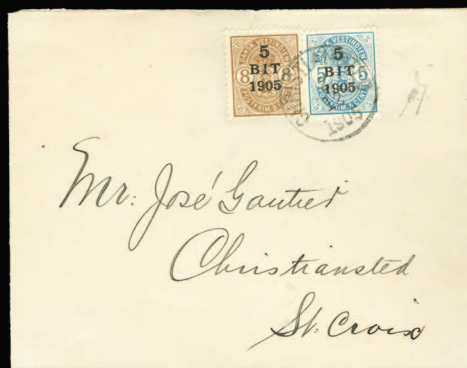 5
BIT
1905
8 8
5
BIT
1905
5 5
1905
Mr: José Gautier
Christiansted
St. Croix